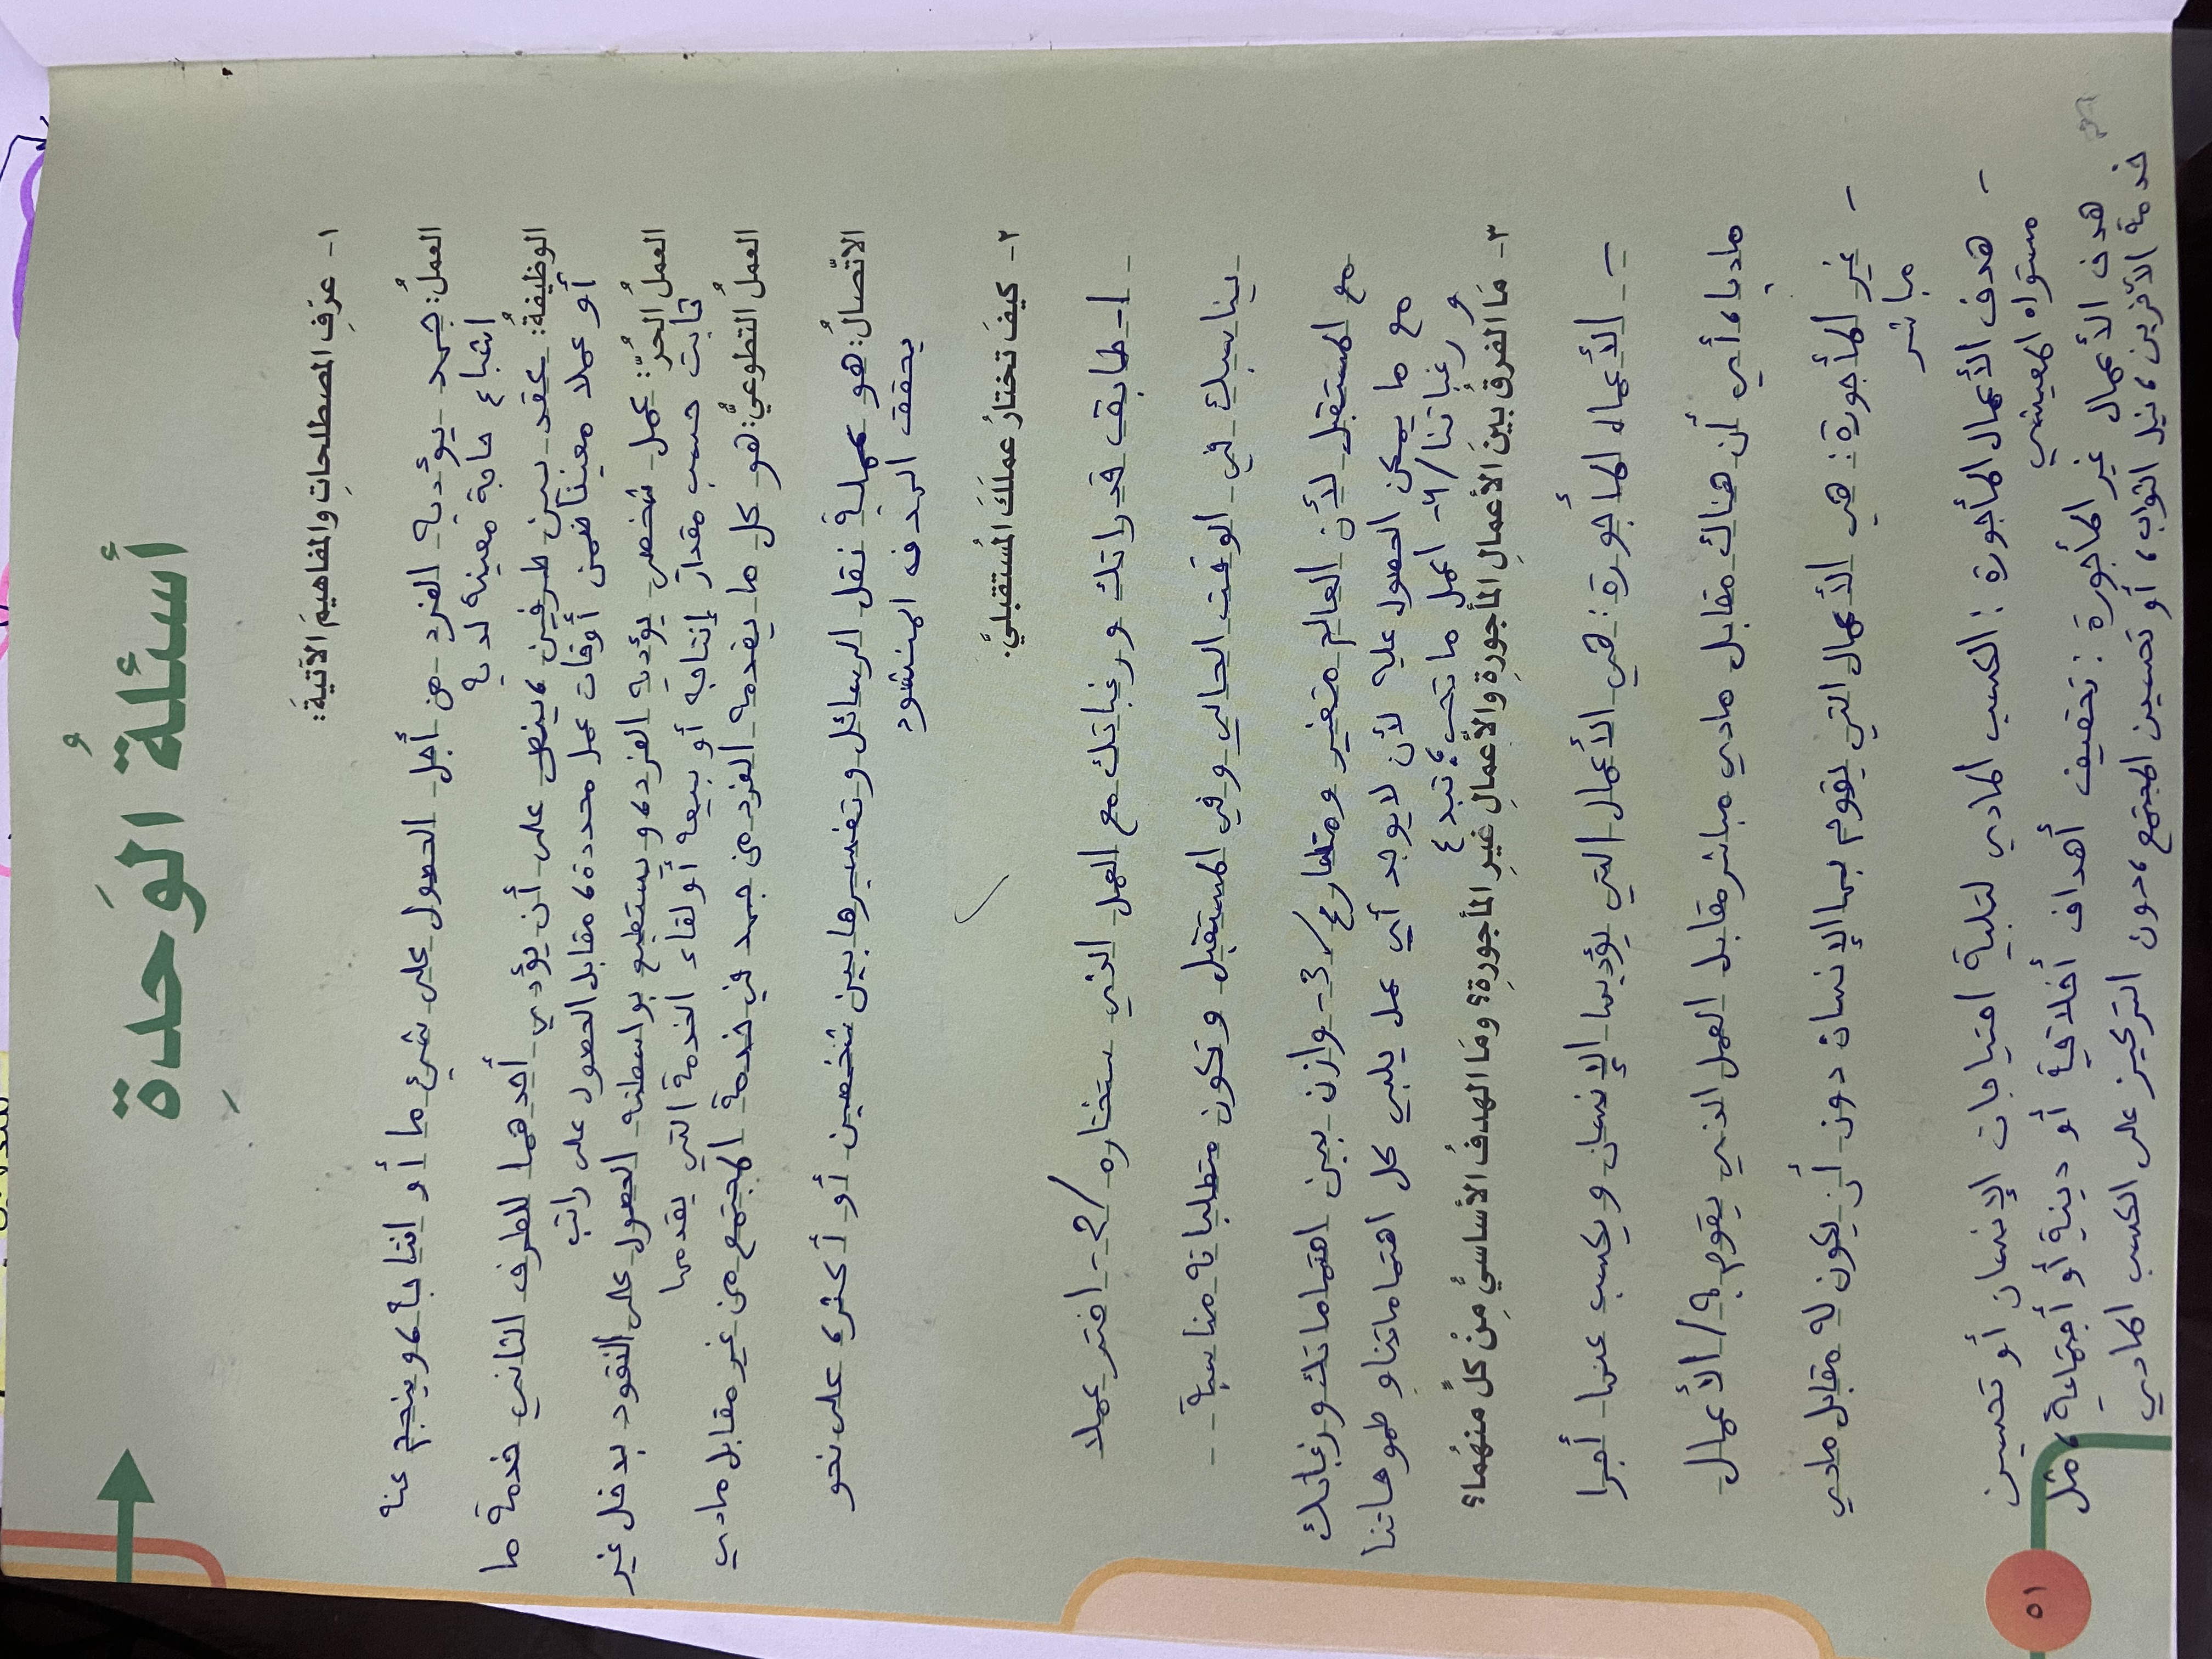 أسئلة الوَحدةُ
١- عرّفِ المصطلحاتِ والمفاهيمَ الآتيةَ:
العملُ: جهد يؤديه الفرد من أجل الحصول على شيء ما أو انتاجاً، وينجم عنه
اشباع حاجة معينة لديه
الوظيفةُ: عقد بين طرفين، ينص على أن يؤدي أحدهما للطرف الثاني خدمة ما
أو عملا معيناً ضمن أوقات عمل محددة، مقابل الحصول على راتب
العملُ الحُرُّ: عمل شخصي يؤديه الفرد، ويستطيع بواسطته الحصول على النقود بدخل غير
ثابت حسب مقدار إنتاجه أو بيعه أو لقاء الخدمة التي يقدمها
العملُ التطوعيُّ: هو كل ما يقدمه الفرد من جهد في خدمة المجتمع من غير مقابل مادي
الاتّصالُ: هو عملية نقل الرسائل وتفسيرها بين شخصين أو أكثر، على نحو
يحقق الهدف المنشود
٢- كيفَ تختارُ عملَكَ المُستقبليَّ.
1- طابق قدراتك ورغباتك مع العمل الذي ستختاره / 2- اختر عملا
يناسبك في الوقت الحالي وفي المستقبل وتكون متطلباته مناسبة
مع المستقبل لأن العالم متغير ومتسارع / 3- وازن بين اهتماماتك ورغباتك
مع ما يمكن الحصول عليه لأن لايوجد أي عمل يلبي كل اهتماماتنا وطموحاتنا
ورغباتنا / 4- اعمل ما تحب، تبدع
٣- مَا الفرقُ بينَ الأعمالِ المأجورةِ والأعمالِ غيرِ المأجورةِ؟ ومَا الهدفُ الأساسيُّ مِنْ كلٍّ منهُما؟
- الأعمال المأجورة: هي الأعمال التي يؤديها الإنسان ويكسب عنها أجرا
ماديا، أي أن هناك مقابل مادي مباشر مقابل العمل الذي يقوم به / الأعمال
- غير المأجورة: هي الأعمال التي يقوم بها الإنسان دون أن يكون له مقابل مادي
مباشر
- هدف الأعمال المأجورة: الكسب المادي لتلبية احتياجات الإنسان أو تحسين
مستواه المعيشي
هدف الأعمال غير المأجورة: تحقيق أهداف أخلاقية أو دينية أو أجتماعية، مثل
خدمة الآخرين، نيل الثواب، أو تحسين المجتمع، دون التركيز على الكسب المادي
٥١